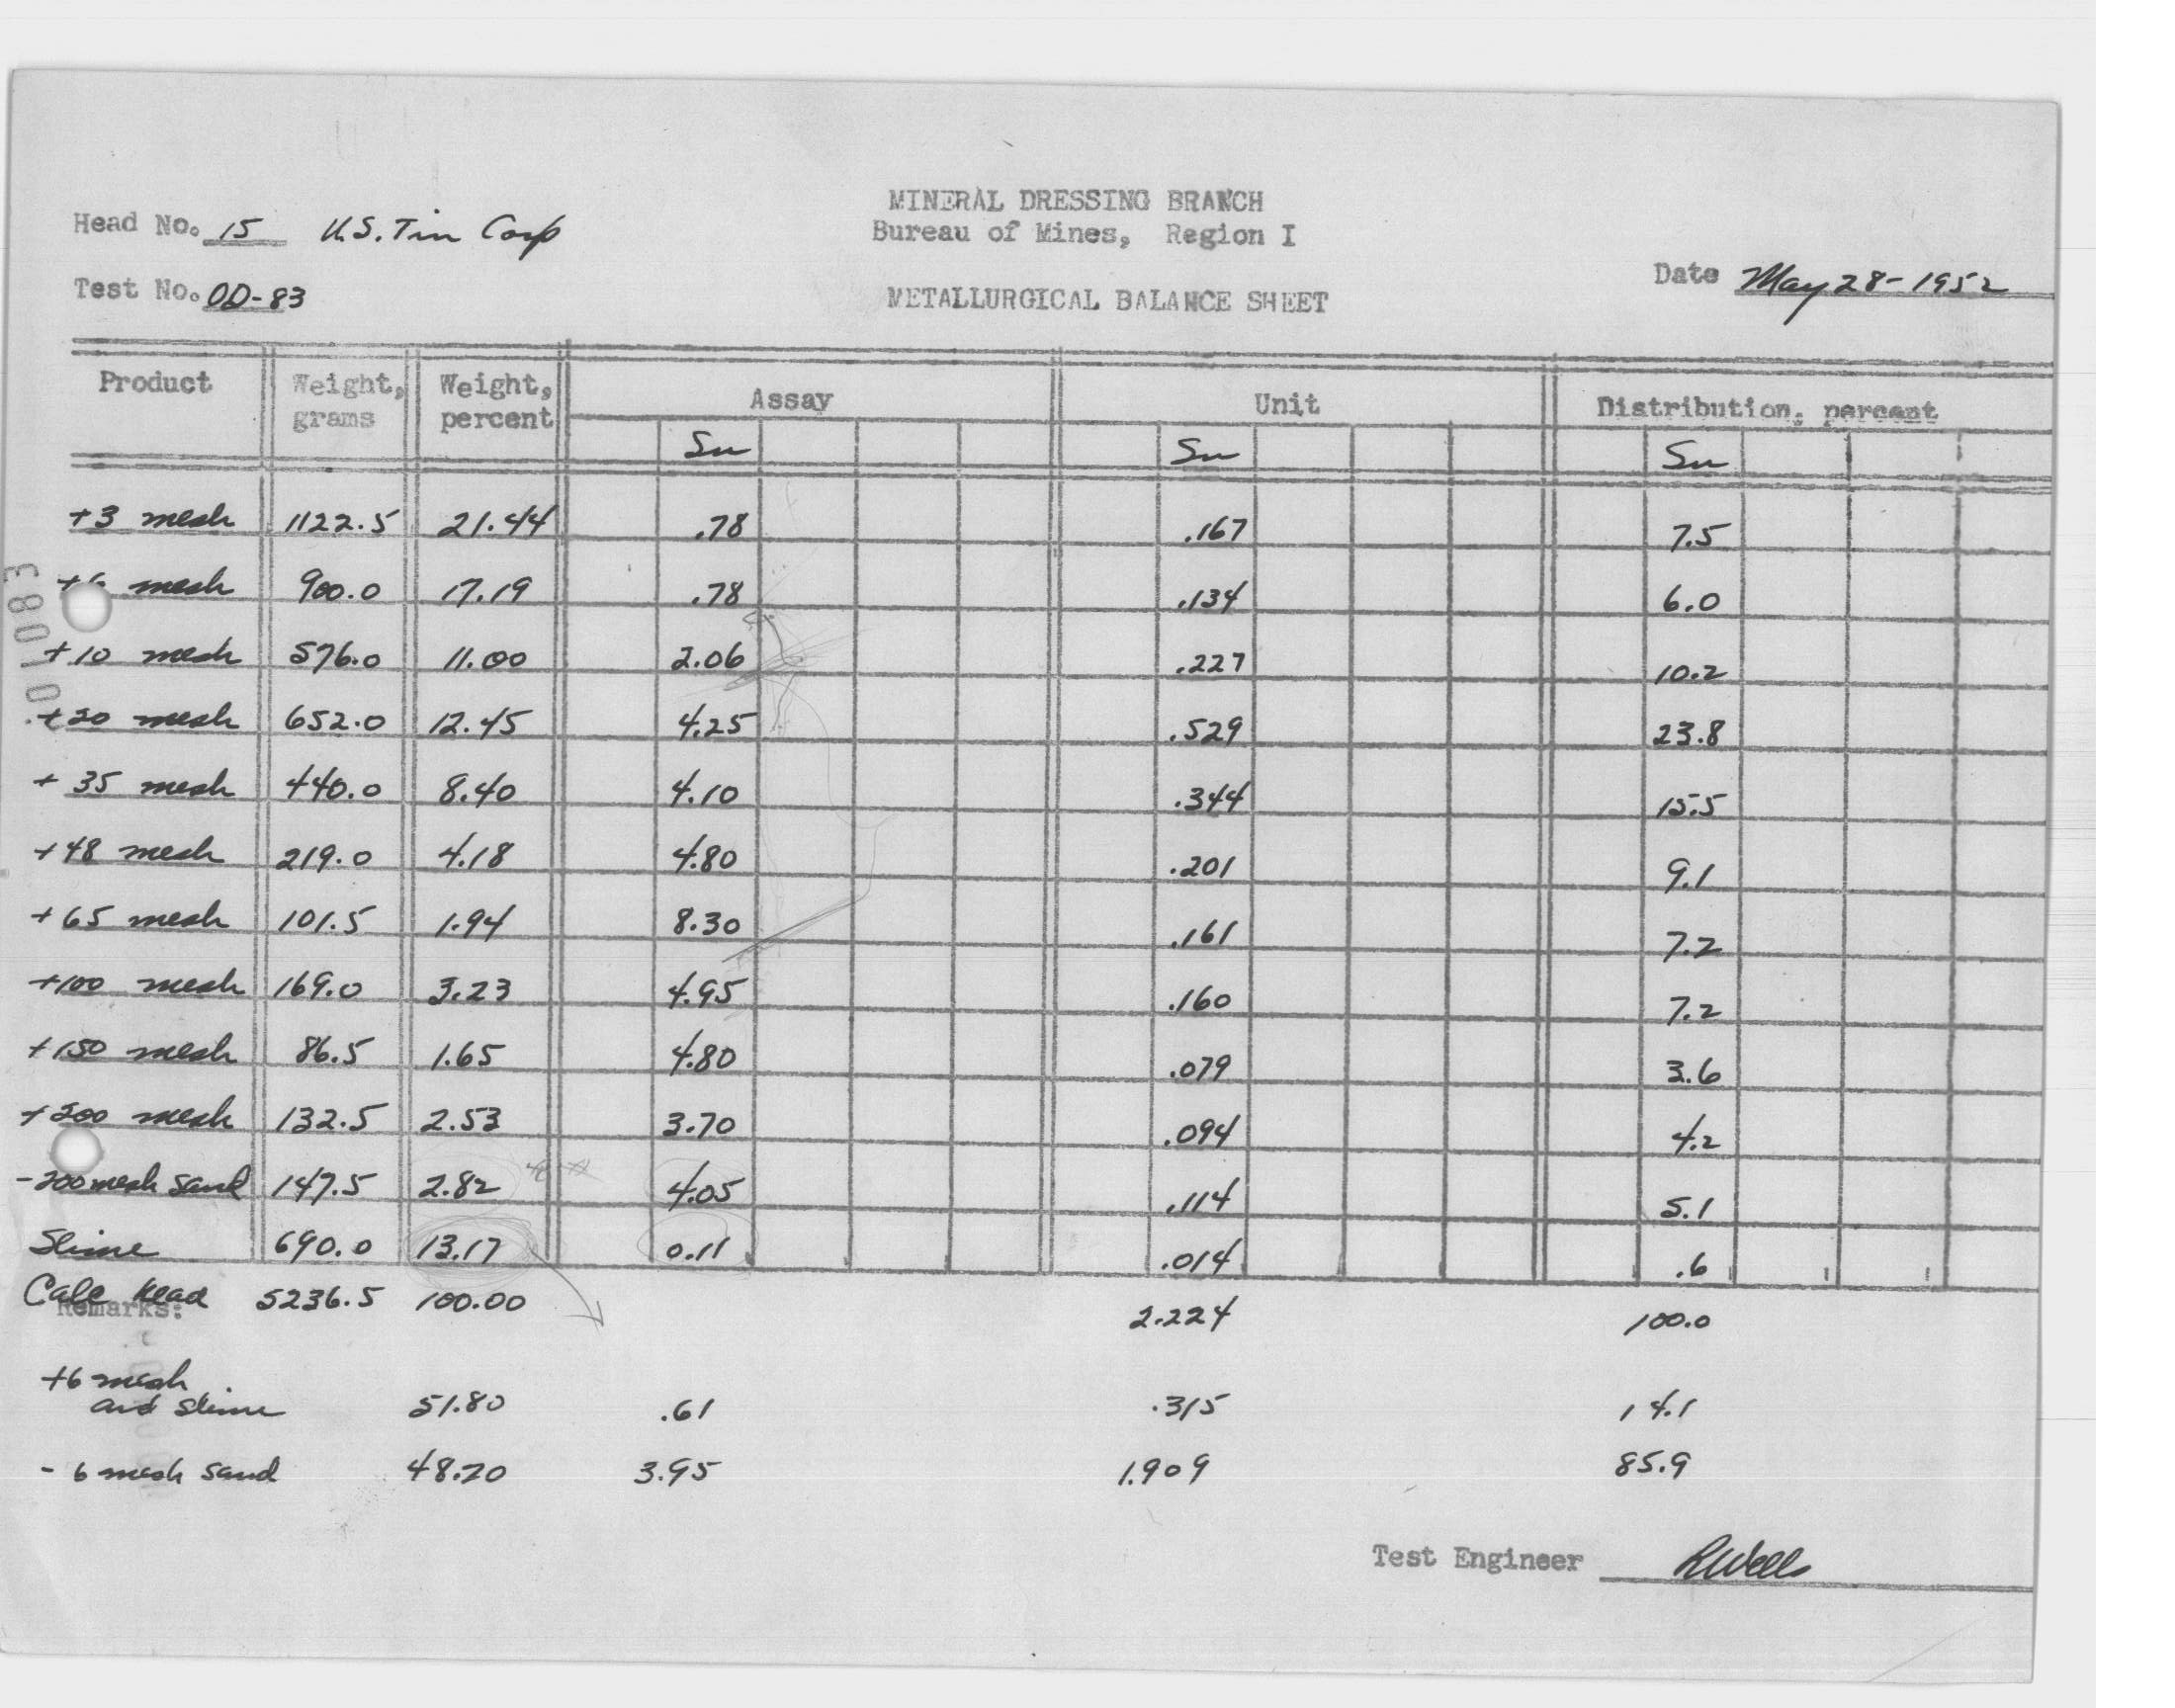 MINERAL DRESSING BRANCH
Head No. 15 U.S. Tin Corp Bureau of Mines, Region I
Test No. OD-83 METALLURGICAL BALANCE SHEET Date May 28-1952
Product Weight, grams Weight, percent Assay Unit Distribution, percent
Sn Sn Sn
+3 mesh 1122.5 21.44 .78 .167 7.5
+6 mesh 900.0 17.19 .78 .134 6.0
+10 mesh 576.0 11.00 2.06 .227 10.2
+20 mesh 652.0 12.45 4.25 .529 23.8
+35 mesh 440.0 8.40 4.10 .344 15.5
+48 mesh 219.0 4.18 4.80 .201 9.1
+65 mesh 101.5 1.94 8.30 .161 7.2
+100 mesh 169.0 3.23 4.95 .160 7.2
+150 mesh 86.5 1.65 4.80 .079 3.6
+200 mesh 132.5 2.53 3.70 .094 4.2
-200 mesh sand 147.5 2.82 4.05 .114 5.1
Slime 690.0 13.17 0.11 .014 .6
Calc Head 5236.5 100.00 2.224 100.0
Remarks:
+6 mesh
and slime 51.80 .61 .315 14.1
- 6 mesh sand 48.20 3.95 1.909 85.9
Test Engineer RWells